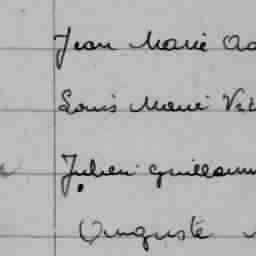 Jean Marie
Louis Marie
Julien Guillaum
Auguste